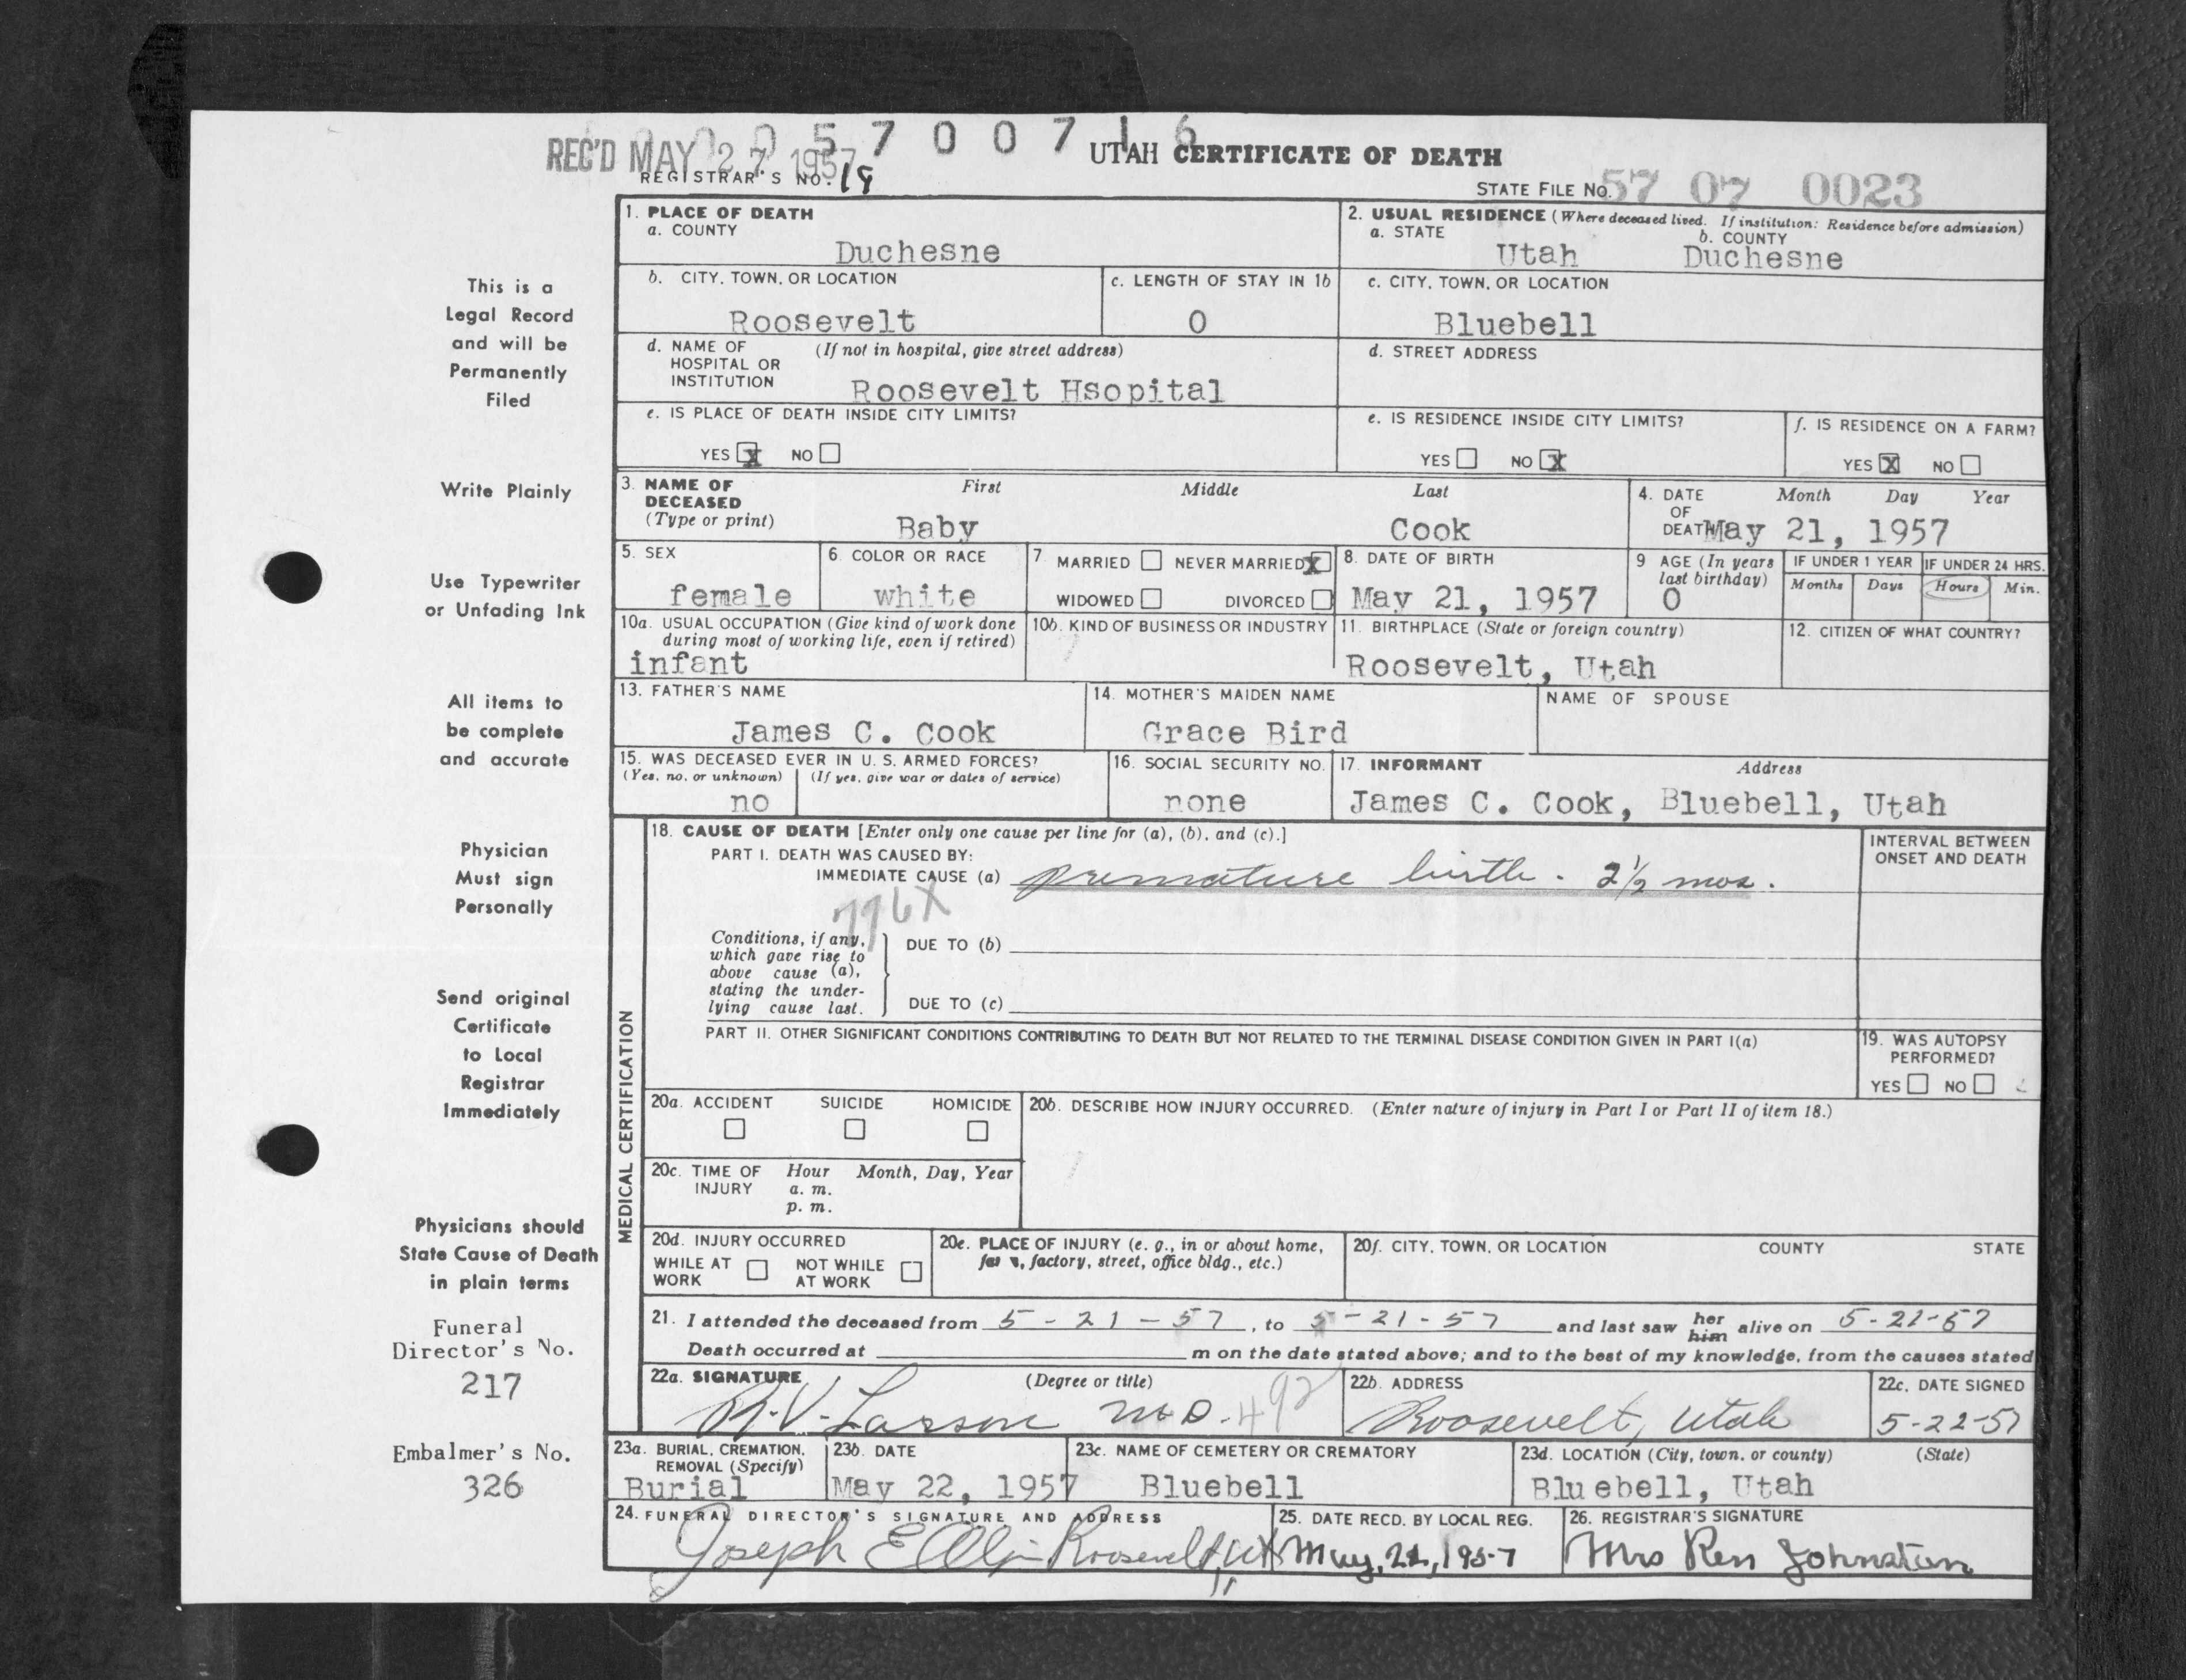 0 0 0 5 7 0 0 7 1 6
REC'D MAY 27 1957
UTAH CERTIFICATE OF DEATH
REGISTRAR'S NO. 19
STATE FILE NO. 57 07 0023
This is a
Legal Record
and will be
Permanently
Filed
Write Plainly
Use Typewriter
or Unfading Ink
All items to
be complete
and accurate
Physician
Must sign
Personally
Send original
Certificate
to Local
Registrar
Immediately
Physicians should
State Cause of Death
in plain terms
Funeral
Director's No.
217
Embalmer's No.
326
1. PLACE OF DEATH
a. COUNTY
Duchesne
2. USUAL RESIDENCE (Where deceased lived. If institution: Residence before admission)
a. STATE b. COUNTY
Utah Duchesne
b. CITY, TOWN, OR LOCATION
Roosevelt
c. LENGTH OF STAY IN 1b
0
c. CITY, TOWN, OR LOCATION
Bluebell
d. NAME OF (If not in hospital, give street address)
HOSPITAL OR
INSTITUTION
Roosevelt Hsopital
d. STREET ADDRESS
e. IS PLACE OF DEATH INSIDE CITY LIMITS?
YES X NO
e. IS RESIDENCE INSIDE CITY LIMITS?
YES NO X
f. IS RESIDENCE ON A FARM?
YES X NO
3. NAME OF First Middle Last
DECEASED
(Type or print)
Baby Cook
4. DATE Month Day Year
OF
DEATH May 21, 1957
5. SEX
female
6. COLOR OR RACE
white
7 MARRIED NEVER MARRIED X
WIDOWED DIVORCED
8. DATE OF BIRTH
May 21, 1957
9 AGE (In years
last birthday)
0
IF UNDER 1 YEAR
Months Days
IF UNDER 24 HRS.
Hours Min.
10a. USUAL OCCUPATION (Give kind of work done
during most of working life, even if retired)
infant
10b. KIND OF BUSINESS OR INDUSTRY
11. BIRTHPLACE (State or foreign country)
Roosevelt, Utah
12. CITIZEN OF WHAT COUNTRY?
13. FATHER'S NAME
James C. Cook
14. MOTHER'S MAIDEN NAME
Grace Bird
NAME OF SPOUSE
15. WAS DECEASED EVER IN U. S. ARMED FORCES?
(Yes, no, or unknown) (If yes, give war or dates of service)
no
16. SOCIAL SECURITY NO.
none
17. INFORMANT Address
James C. Cook, Bluebell, Utah
MEDICAL CERTIFICATION
18. CAUSE OF DEATH [Enter only one cause per line for (a), (b), and (c).]
INTERVAL BETWEEN
ONSET AND DEATH
PART I. DEATH WAS CAUSED BY:
IMMEDIATE CAUSE (a) premature birth - 2½ mos.
776X
Conditions, if any,
which gave rise to
above cause (a),
stating the under-
lying cause last.
DUE TO (b)
DUE TO (c)
PART II. OTHER SIGNIFICANT CONDITIONS CONTRIBUTING TO DEATH BUT NOT RELATED TO THE TERMINAL DISEASE CONDITION GIVEN IN PART I(a)
19. WAS AUTOPSY
PERFORMED?
YES NO
20a. ACCIDENT SUICIDE HOMICIDE
20b. DESCRIBE HOW INJURY OCCURRED. (Enter nature of injury in Part I or Part II of item 18.)
20c. TIME OF Hour Month, Day, Year
INJURY a. m.
p. m.
20d. INJURY OCCURRED
WHILE AT NOT WHILE
WORK AT WORK
20e. PLACE OF INJURY (e. g., in or about home,
factory, street, office bldg., etc.)
20f. CITY, TOWN, OR LOCATION COUNTY STATE
21. I attended the deceased from 5-21-57, to 5-21-57 and last saw her him alive on 5-21-57
Death occurred at m on the date stated above; and to the best of my knowledge, from the causes stated
22a. SIGNATURE (Degree or title)
R.V. Larson M.D. 492
22b. ADDRESS
Roosevelt, Utah
22c. DATE SIGNED
5-22-57
23a. BURIAL, CREMATION,
REMOVAL (Specify)
Burial
23b. DATE
May 22, 1957
23c. NAME OF CEMETERY OR CREMATORY
Bluebell
23d. LOCATION (City, town, or county) (State)
Bluebell, Utah
24. FUNERAL DIRECTOR'S SIGNATURE AND ADDRESS
Joseph E Roosevelt, Ut
25. DATE RECD. BY LOCAL REG.
May, 22, 1957
26. REGISTRAR'S SIGNATURE
Mrs Ren Johnston